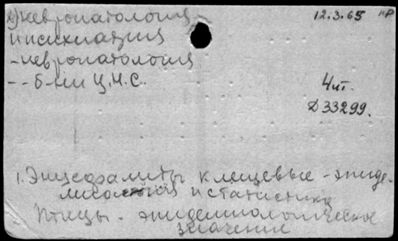 2) невропатология 12.3.65 нр
и психиатрия
- невропатология
-- б-ни Ц.Н.С.
4 п.
Д 33299.
1. Энцефалиты клещевые - эпиде-
и статистика
Птицы - эпидемиологическое
значение